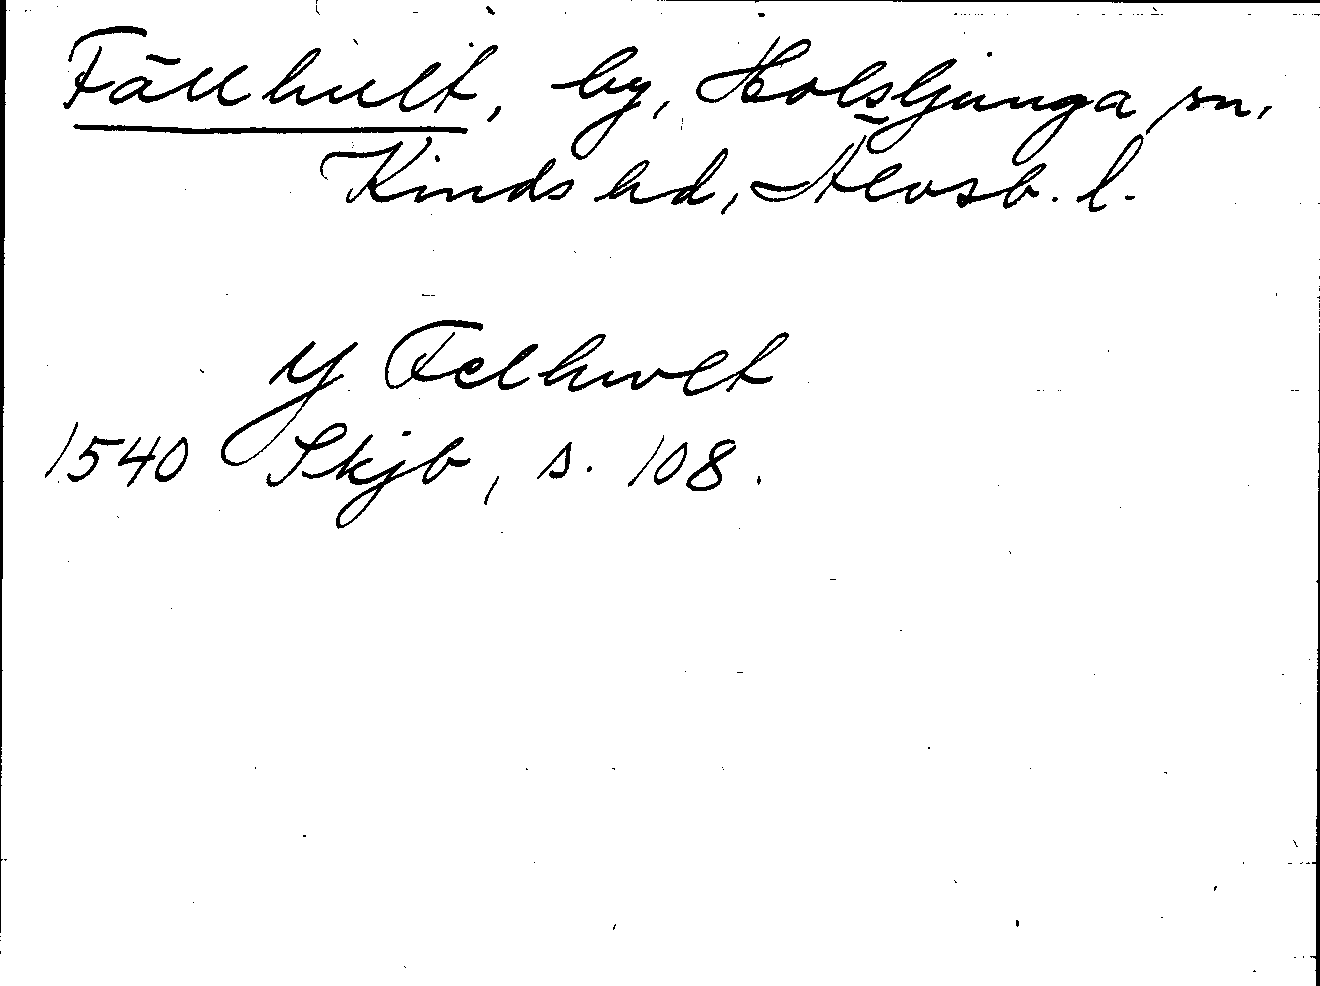 Fällhult, by, Holsljunga sn.
Kinds hd, Älvsb. l.
y Felhwlt
1540 Skjb, s. 108.